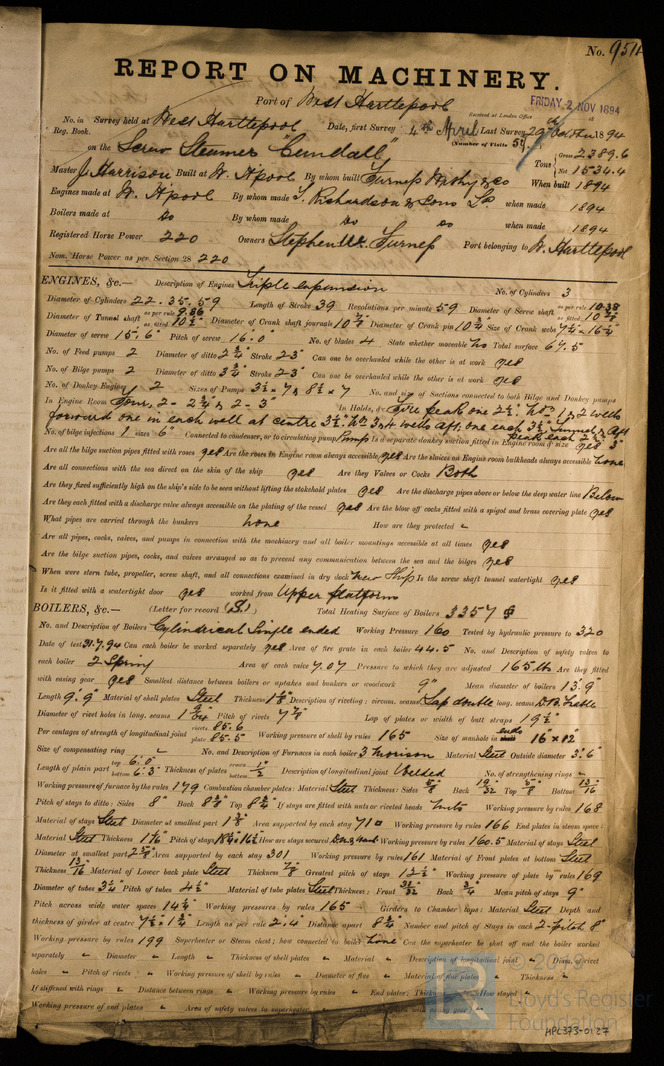 No. 9511
REPORT ON MACHINERY.
Port of West Hartlepool
FRIDAY 2 NOV 1894
Received at London Office
No. in Survey held at West Hartlepool Date, first Survey 4th April Last Survey 29th October 1894
Reg. Book. (Number of Visits 59)
on the Screw Steamer "Cundall" Tons Gross 2389.6 Net 1534.4
Master J. Harrison Built at W. H'pool By whom built Furness Withy & Co When built 1894
Engines made at W. H'pool By whom made T. Richardson & Sons Ld. when made 1894
Boilers made at do By whom made do do when made 1894
Registered Horse Power 220 Owners Stephen W. Furness Port belonging to W. Hartlepool
Nom. Horse Power as per Section 28 220
ENGINES, &c.— Description of Engines Triple expansion No. of Cylinders 3
Diameter of Cylinders 22.35.59 Length of Stroke 39 Revolutions per minute 59 Diameter of Screw shaft as per rule 10.38 as fitted
Diameter of Tunnel shaft as per rule 9.86 as fitted 10 1/2" Diameter of Crank shaft journals Diameter of Crank pin Size of Crank webs
Diameter of screw 15.6" Pitch of screw 16.0" No. of blades 4 State whether moveable No Total surface 67.5
No. of Feed pumps 2 Diameter of ditto 2 3/4" Stroke 2-3" Can one be overhauled while the other is at work yes
No. of Bilge pumps 2 Diameter of ditto 3 3/4" Stroke 2-3" Can one be overhauled while the other is at work yes
No. of Donkey Engines 2 Sizes of Pumps 3 1/2 x 7 & 8 1/2 x 7 No. and size of Suctions connected to both Bilge and Donkey pumps
In Engine Room Four, 2- 2 3/4" & 2- 3" In Holds, &c. Fore peak one 2 1/2" No 1 & 2 wells
forward one in each well at centre 3 1/2" No 3 & 4 wells aft, one each 3 1/2" Tunnel & aft peak each 2 1/2"
No. of bilge injections 1 sizes 6" Connected to condenser, or to circulating pump Pump Is a separate donkey suction fitted in Engine room & size yes 3"
Are all the bilge suction pipes fitted with roses yes Are the roses in Engine room always accessible yes Are the sluices on Engine room bulkheads always accessible none
Are all connections with the sea direct on the skin of the ship yes Are they Valves or Cocks Both
Are they fixed sufficiently high on the ship's side to be seen without lifting the stokehold plates yes Are the discharge pipes above or below the deep water line Below
Are they each fitted with a discharge valve always accessible on the plating of the vessel yes Are the blow off cocks fitted with a spigot and brass covering plate yes
What pipes are carried through the bunkers none How are they protected "
Are all pipes, cocks, valves, and pumps in connection with the machinery and all boiler mountings accessible at all times yes
Are the bilge suction pipes, cocks, and valves arranged so as to prevent any communication between the sea and the bilges yes
When were stern tube, propeller, screw shaft, and all connections examined in dry dock New Ship Is the screw shaft tunnel watertight yes
Is it fitted with a watertight door yes worked from Upper Platform
BOILERS, &c.— (Letter for record (S)) Total Heating Surface of Boilers 3357
No. and Description of Boilers Cylindrical Single ended Working Pressure 160 Tested by hydraulic pressure to 320
Date of test 31.7.94 Can each boiler be worked separately yes Area of fire grate in each boiler 44.5 No. and Description of safety valves to
each boiler 2 Spring Area of each valve 7.07 Pressure to which they are adjusted 165 lbs Are they fitted
with easing gear yes Smallest distance between boilers or uptakes and bunkers or woodwork 9" Mean diameter of boilers 13'.9"
Length 9'.9" Material of shell plates Steel Thickness Description of riveting: circum. seams Lap double long. seams D.B. treble
Diameter of rivet holes in long. seams Pitch of rivets Lap of plates or width of butt straps 19 1/2"
Per centages of strength of longitudinal joint rivets 85.6 plate 85.5 Working pressure of shell by rules 165 Size of manhole in ends 16" x 12"
Size of compensating ring " No. and Description of Furnaces in each boiler 3 Morison Material Steel Outside diameter 3'.6"
Length of plain part top 6'.0" bottom 6'.3" Thickness of plates crown bottom 1/2" Description of longitudinal joint Welded No. of strengthening rings "
Working pressure of furnace by the rules 179 Combustion chamber plates: Material Steel Thickness: Sides 5/8" Back 19/32 Top 5/8" Bottom 13/16
Pitch of stays to ditto: Sides 8" Back Top If stays are fitted with nuts or riveted heads nuts Working pressure by rules 168
Material of stays Steel Diameter at smallest part Area supported by each stay 71 Working pressure by rules 166 End plates in steam space:
Material Steel Thickness Pitch of stays How are stays secured Working pressure by rules 160.5 Material of stays Steel
Diameter at smallest part Area supported by each stay 301 Working pressure by rules 161 Material of Front plates at bottom Steel
Thickness 13/16" Material of Lower back plate Steel Thickness 7/8" Greatest pitch of stays 12 1/2" Working pressure of plate by rules 169
Diameter of tubes 3 1/4" Pitch of tubes 4 1/2" Material of tube plates Steel Thickness: Front Back 3/4" Mean pitch of stays 9"
Pitch across wide water spaces 14 1/4" Working pressures by rules 165 Girders to Chamber tops: Material Steel Depth and
thickness of girder at centre 7 1/2 x 1 3/4" Length as per rule 2'.4" Distance apart 8 3/4" Number and pitch of Stays in each 2-pitch 8"
Working pressure by rules 199 Superheater or Steam chest; how connected to boiler none Can the superheater be shut off and the boiler worked
separately " Diameter " Length " Thickness of shell plates " Material " Description of longitudinal joint " Diam. of rivet
holes " Pitch of rivets " Working pressure of shell by rules " Diameter of flue " Material of flue plates " Thickness "
If stiffened with rings " Distance between rings " Working pressure by rules " End plates: Thickness " How stayed "
Working pressure of end plates " Area of safety valves to superheater
© 2019
Lloyd's Register
Foundation
HPL373-0127